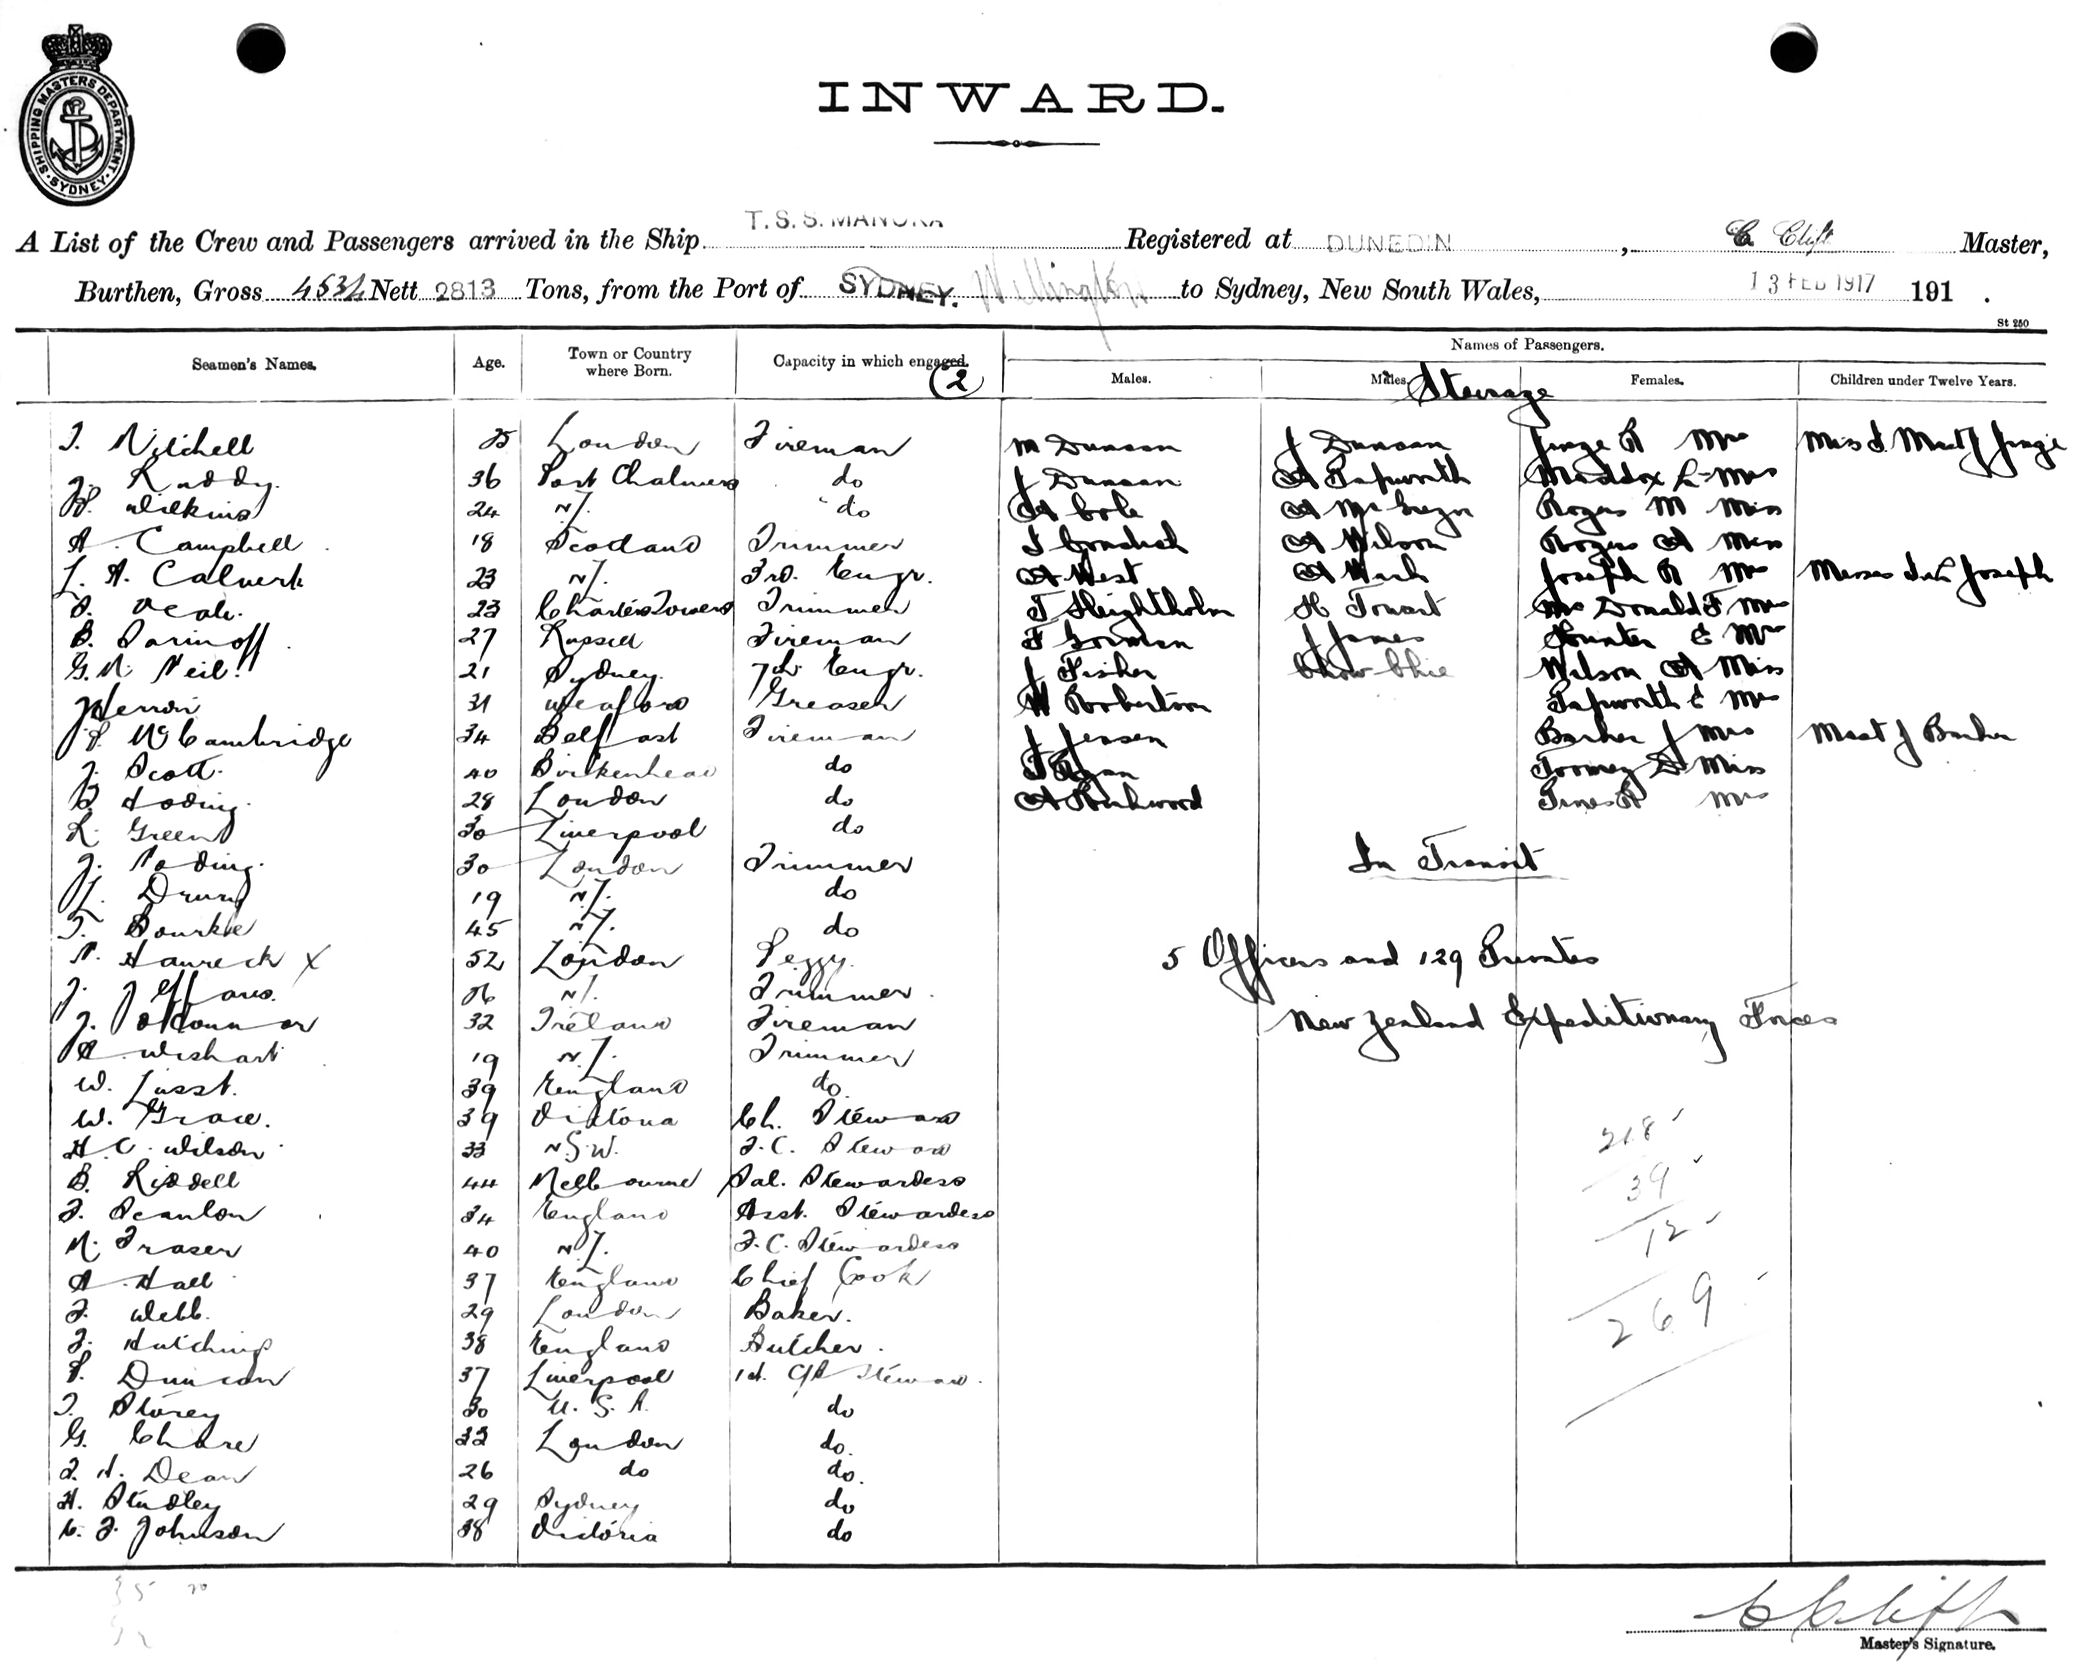 SHIPPING MASTERS DEPARTMENT. SYDNEY.
INWARD.
A List of the Crew and Passengers arrived in the Ship T.S.S. MANUKA Registered at DUNEDIN, C. Clift Master,
Burthen, Gross 4534 Nett 2813 Tons, from the Port of SYDNEY. Wellington to Sydney, New South Wales, 13 FEB 1917 191 .
St 250
Seamen's Names. Age. Town or Country where Born. Capacity in which engaged. Names of Passengers.
(2) Males. Males. Steerage Females. Children under Twelve Years.
T. Mitchell 25 London Fireman M Duncan J Duncan R Mrs
J. Ruddy. 36 Port Chalmers do J Duncan A Papworth Maddox L Mrs
Wilkins 24 N.Z. do A Cole A McGregor Rogers M Miss
A. Campbell 18 Scotland Trimmer A Wilson Rogers A Miss
L. A. Calvert 23 N.Z. 3rd. Engr. A West Joseph R Mrs Joseph
23 Charters Towers Trimmer T Heightholm H Towart McDonald F Mrs
B. Sarinoff 27 Russia Fireman F Gorman J James Hunter E Mrs
G. M. Neil. 21 Sydney. 7th Engr. J Fisher Chow Chie Wilson A Miss
J Herron 31 Wexford Greaser W Robertson Papworth E Mrs
P. McCambridge 34 Belfast Fireman J Jensen Barker J Mrs Mast J Barker
J. Scott. 40 Birkenhead do T Ryan Toomey D Miss
Hoding. 28 London do A Rockwood R Mrs
R. Green 30 Liverpool do
J. Noding. 30 London Trimmer In Transit
L. Drury 19 N.Z. do
T. Bourke 45 N.Z. do
P. Hawreck X 52 London Peggy. 5 Officers and 129 Privates
J. N.Z. Trimmer.
J. O'Connor 32 Ireland Fireman New Zealand Expeditionary Forces
A. Wishart 19 N.Z. Trimmer
W. Lusst. 39 England do.
W. Grace. 39 Victoria Ch. Steward
H. C. Wilson 33 N.S.W. F.C. Steward 218
B. Riddell 44 Melbourne Sal. Stewardess 39
F. Scanlon 34 England Asst. Stewardess
M. Fraser 40 N.Z. F.C. Stewardess 12
A. Hall 37 England Chief Cook
F. Webb. 29 London Baker. 269
F. Hutchings 38 England Butcher.
P. Duncan 37 Liverpool Steward.
T. Storey 30 U.S.A. do
G. Chare 33 London do.
F. H. Dean 26 do do.
H. Studley 29 Sydney do
C. F. Johnson 38 Victoria do
35
C Clift
Master's Signature.